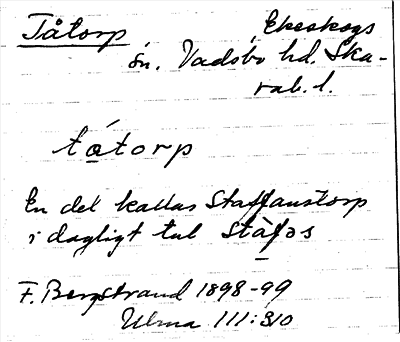 Tåtorp Ekeskogs
sn. Vadsbo hd. Ska-
rab. l.
tátorp
En del kallas Staffanstorp
i dagligt tal Stàfəs
F. Bergstrand 1898-99
Ulma 111:310